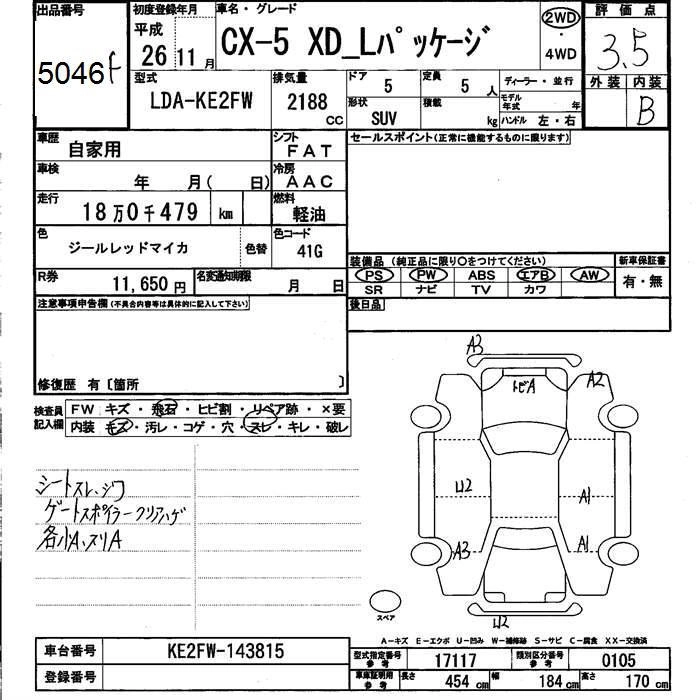 出品番号 初度登録年月 車名・グレード 評価点
5046 f
平成
26 11月
CX-5 XD_Lパッケージ
2WD
・
4WD
3.5
外装 内装
B
型式 排気量 ドア 定員 ディーラー・並行
LDA-KE2FW 2188 cc 5 5人
形状 積載 モデル年式 年
SUV kg ハンドル 左・右
車歴 シフト セールスポイント(正常に機能するものに限ります)
自家用 FAT
車検 冷房
年 月( 日) AAC
走行 燃料
18万0千479 km 軽油
色 色コード
ジールレッドマイカ 色替 41G
装備品 (純正品に限り○をつけてください) 新車保証書
PS PW ABS エアB AW 有・無
SR ナビ TV カワ
R券 名変通知期限 後日品
11,650円 月 日
注意事項申告欄(不具合内容等は具体的に記入して下さい)
修復歴 有〔箇所 〕
検査員記入欄
FW キズ・飛石・ヒビ割・リペア跡・×要
内装 キズ・汚レ・コゲ・穴・スレ・キレ・破レ
シートスレ、シワ
ゲートスポイラークリアハゲ
各小A、スリA
A3
トビA
A2
U2
A1
A3
A1
U2
スペア
A−キズ E−エクボ U−凹み W−補修跡 S−サビ C−腐食 XX−交換済
車台番号 KE2FW-143815
登録番号
型式指定番号 参考 17117 類別区分番号 参考 0105
車庫証明用 参考 長さ 454cm 幅 184cm 高さ 170cm